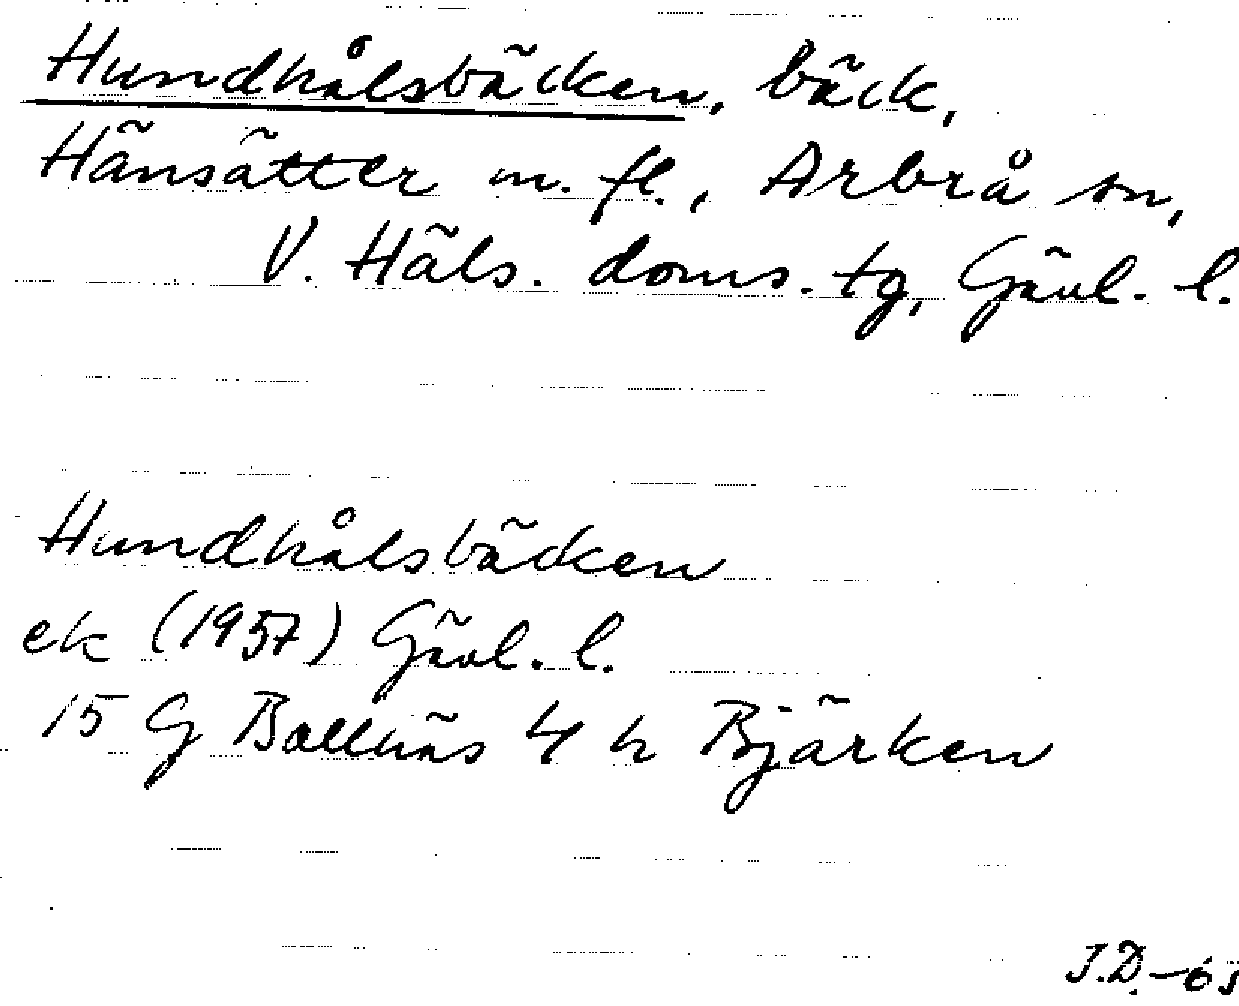 Hundhålsbäcken, bäck,
Hänsätter m. fl., Arbrå sn,
V. Häls. doms. tg, Gävl. l.
Hundhålsbäcken
ek (1957) Gävl. l.
15 G Bollnäs 4 h Bjärken
J.D.-65